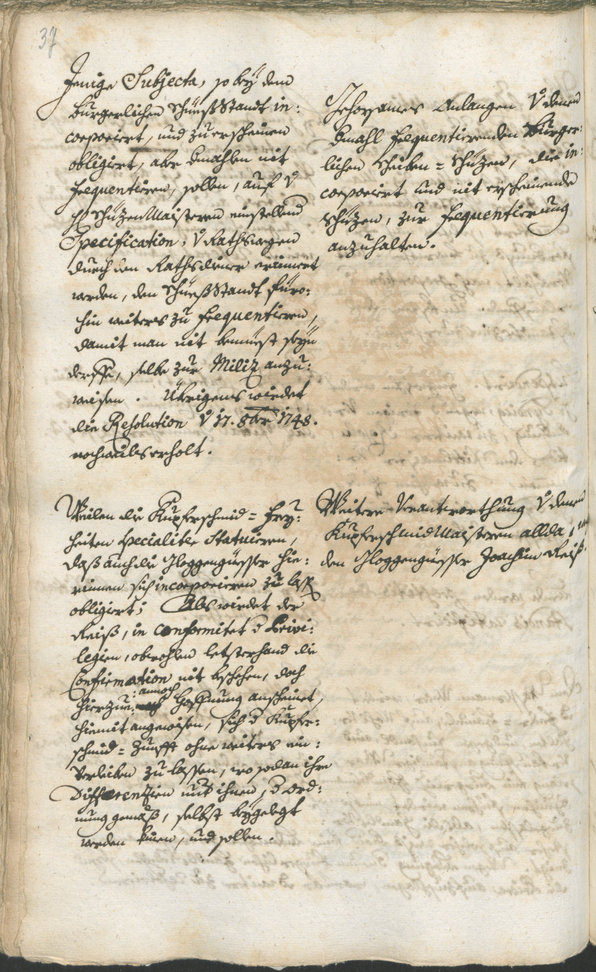 37
Jenige Subjecta, so bey dem
Burgerlichen Schüeßstandt in:
corporiert, und zu erscheinen
obligirt, aber dmahlen nit
frequentieren, sollen, auf
Schüzen Maisteren einstellend
Specification, Rathswegen
durch den Rathsdiener erinnert
werden, den Schüeßstandt füro:
hin weiters zu frequentieren,
damit man nit bemüest seyn
derffe, selbe zur Miliz anzu:
weisen. Übrigens wirdet
die Resolution 17. 8br 1748.
nochmalls erholt.
Gehorsames Anlangen denen
dmahl frequentierenden Burger:
lichen Scheiben=Schüzen, die in:
corporiert und nit erscheinende
Schüzen, zur frequentierung
anzuhalten.
Weilen die Kupferschmid=Frey:
heiten specialiter statuieren,
daß auch die Gloggengüesser hie:
rinnen sich incorporieren zu lassen
obligirt; Als wirdet der
Reiß, in conformitet d Privi:
legien, obwohlen letsterhand die
Confirmation nit beschehen, doch
hierzue annoch Hoffnung anscheinet,
hiemit angewisen, sich d Kupfer:
schmid=Zunfft ohne weiters ein:
verleiben zu lassen, wo sodan ihre
Differentien mit ihnen, d ord:
nung gemäß, selbst beygelegt
werden können, und sollen.
Weitere Verantworthung denen
Kupferschmid Maisteren allda,
den Gloggengüesser Joachim Reiß.